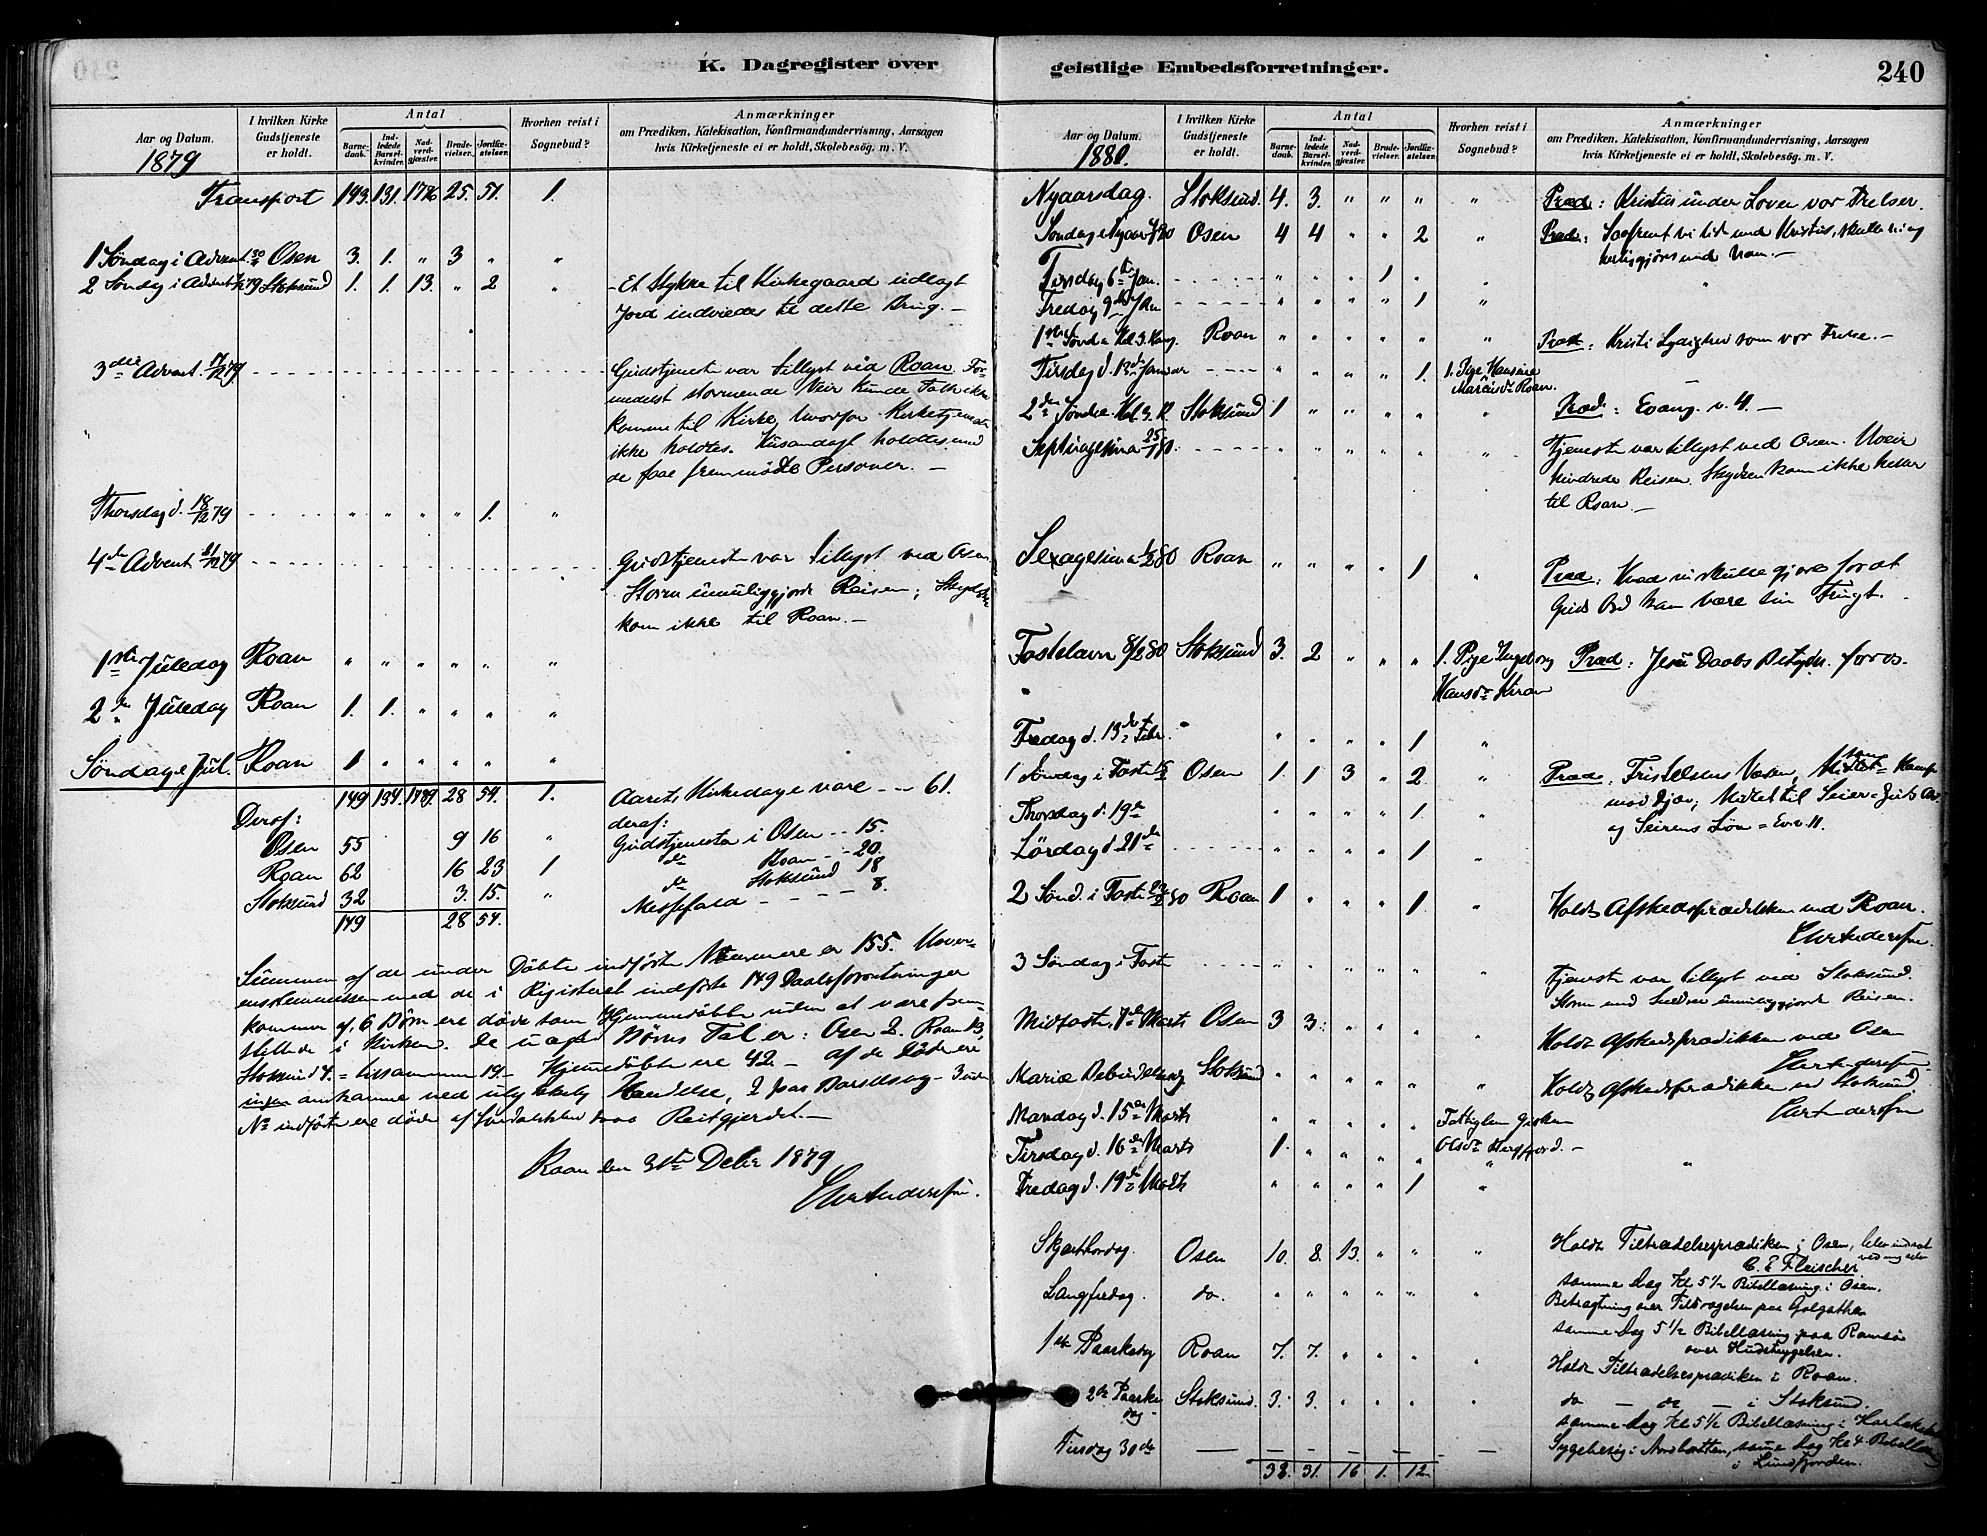 K. Dagregister over geistlige Embedsforretninger.
240
Aar og Datum.
1879
I hvilken Kirke Gudstjeneste er holdt.
Antal
Barne-daab.
Ind-ledede Barsel-kvinder.
Nad-verd-gjæster.
Brude-vielser.
Jordfæ-stelser.
Hvorhen reist i Sognebud?
Anmærkninger
om Prædiken, Katekisation, Konfirmandundervisning, Aarsagen
hvis Kirketjeneste ei er holdt, Skolebesög. m. V.
Transport 143. 131. 1776 25. 51. 1.
1 Søndag i Advent 30 Osen 3. 1. " 3 " "
2 Søndag i Advent 7/12 79 Stoksund 1. 1. 13. " 2 "
Et Stykke til Kirkegaard udlagt
Jord indviedes til dette Brug. –
3die Advent 14/12 79
Gudstjeneste var tillyst ved Roan. For-
medelst stormende Veir kunde Folk ikke
komme til Kirke, hvorfor Kirketjeneste
ikke holdtes. Husandagt holdtes med
de faae fremmødte Personer. –
Thorsdag d. 18/12 79 " " " " 1. "
4de Advent 21/12 79
Gudstjeneste var tillyst ved Osen
Storm umuliggjorde Reisen; Skydsen
kom ikke til Roan. –
1ste Juledag Roan " " " " " "
2den Juledag Roan 1. 1. " " " "
Søndag e. Jul. Roan 1 " " " " "
149 134. 1789. 28 54. 1.
Aarets Kirkedage vare -- 61.
Deraf:
deraf:
Osen 55 9 16 "
Gudstjeneste i Osen -- 15.
Roan 62 16 23 1
do Roan -- 20.
Stoksund 32 3. 15. "
do Stoksund 18
Messefald - - - - 8.
149 28 54.
Summen af de under Døbte indførte Nummere er 155. Uover-
ensstemmelsen med de i Registeret indførte 149 Daabsforretninger
kommer af 6 Børn ere døde som Hjemmedøbte uden at være frem-
stillede i Kirken. De uægte Børns Tal er: Osen 2. Roan 13,
Stoksund 4. = tilsammen 19. – Hjemmedøbte ere 42. – af de Døde ere
ingen omkomne ved ulykkelig Hændelse, 2 paa Barselseng – 3 uden
No indførte ere døde af Spedalskhed paa Reitgjerdet. –
Roan den 31te Decbr 1879
Aar og Datum.
1880.
I hvilken Kirke Gudstjeneste er holdt.
Antal
Barne-daab.
Ind-ledede Barsel-kvinder.
Nad-verd-gjæster.
Brude-vielser.
Jordfæ-stelser.
Hvorhen reist i Sognebud?
Anmærkninger
om Prædiken, Katekisation, Konfirmandundervisning, Aarsagen
hvis Kirketjeneste ei er holdt, Skolebesög. m. V.
Nyaarsdag. Stoksund. 4. 3. " " " "
Præd: Kristus under Loven vor Frelser.
Søndag e. Nyaar 4/1 80 Osen 4 4 " " 2 "
Præd: Saafremt vi lide med Kristus, skulle vi og
herliggjøres med ham. –
Tirsdag 6te Jan. " " " 1 " "
Fredag 9de Jan " " " " 1 "
Roan " " " " " "
Præd: Kristi Lydighed som vor Frelse. –
Tirsdag d. 13de Januar " " " " 1. 1. Pige Hansine
Roan.
2den Søndag Stoksund 1 " " " " "
Præd: Evang. v. 4. –
Septuagesima 25/1 80. " " " " " "
Tjeneste var tillyst ved Osen. Uveir
hindrede Reisen. Skydsen kom ikke heller
til Roan. –
Sexagesima 1/2 80 Roan " " " " 1 "
Præd: Hvad vi skulle gjøre for at
Guds Ord kan bære sin Frugt.
Fastelavn 8/2 80 Stoksund 3. 2 " " " 1. Pige Ingeborg
Hansdr Kiran
Præd: Jesu Daabs Betydn. for os.
Fredag d. 13de Febr. " " " " 1 "
1 Søndag i Faste 15/2 Osen 1. 1 3 " 2 "
Præd. Fristelsens Væsen,
Thorsdag d. 19de " " " " 1. "
og Seirens Løn = Ev. v. 11.
Lørdag d 21de " " " " 1 "
2 Sønd. i Faste 22/2 80 Roan 1 " " " 1 "
Holdt Afskedsprædikken ved Roan.
3 Søndag i Faste " " " " " "
Tjeneste var tillyst ved Stoksund.
Storm umuliggjorde Reisen.
Midfaste, 7de Marts Osen 3 3. " " " "
Holdt Afskedsprædikken ved Osen
Mariæ Bebudelsesdag Stoksund " " " " " "
Holdt Afskedsprædikken ved Stoksund
Mandag d. 15de Marts " " " " "
Tirsdag d. 16de Marts 1. " " " " "
Fredag d. 19de Marts " " " " 1 "
Skjærthorsdag. Osen 10. 8. 13. " " "
Holdt Tiltrædelsesprædiken i Osen,
C. E. Fleischer
Langfredag. do. " " " " " "
samme Dag Kl 5 1/2 Bibellæsning i Osen.
Betragtning over Tildragelsen paa Golgatha
samme Dag 5 1/2 Bibellæsning paa Ramsø
1ste Paaskedag Roan 7. 7. " " " "
Holdt Tiltrædelsesprædiken i Roan.
2de Paaske dag Stoksund. 3. 3. " " " "
do – do – i Stoksund.
samme Dag Kl 5 1/2 Bibellæsning i
Tirsdag 30de — — — — — — —
Sygebesøg i samme Dag Kl 4
38. 31. 16 1. 12.